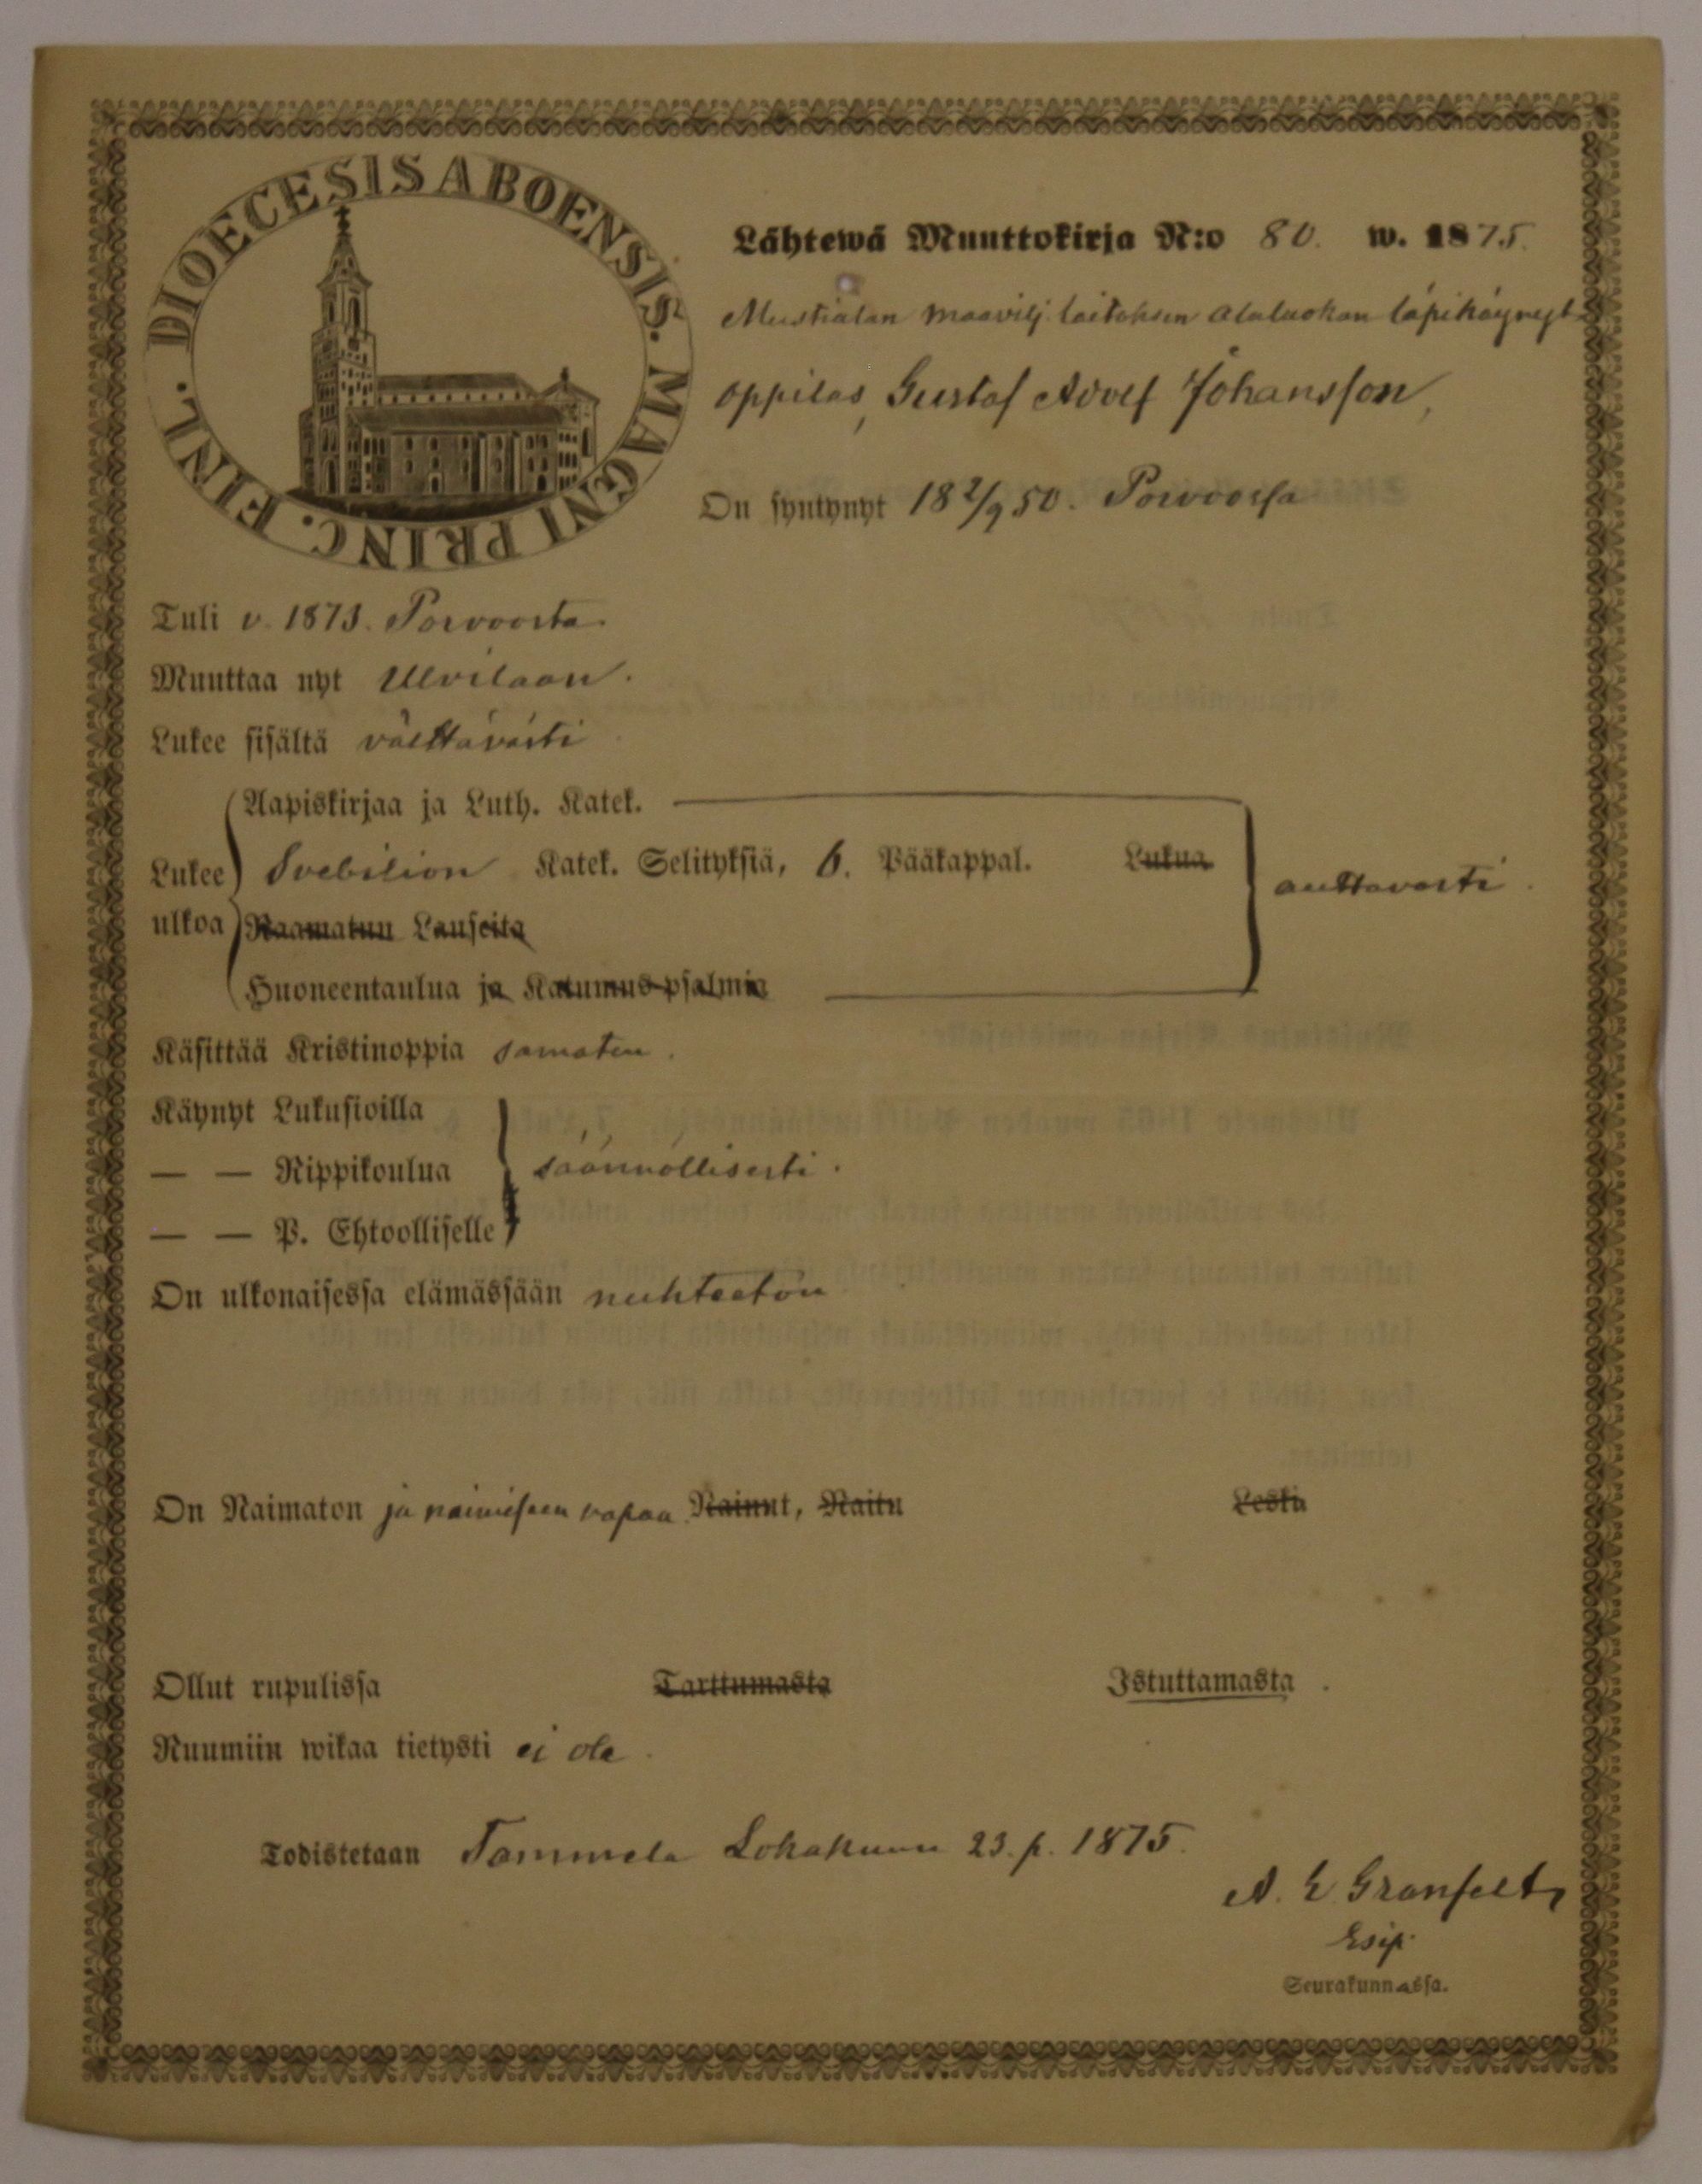 DIOECESIS ABOENSIS. MAGNI PRINC. FINL.
Lähtewä Muuttokirja N:o 80. w. 1875.
Mustialan maavilj. laitoksen alaluokan läpikäynyt
oppilas, Gustaf Adolf Johansson,
On syntynyt 18 2/9 50. Porvoossa
Tuli v. 1873. Porvoosta.
Muuttaa nyt Ulvilaan.
Lukee sisältä välttävästi
Aapiskirjaa ja Luth. Katek.
Lukee ulkoa Svebilion Katek. Selityksiä, 6. Pääkappal. Lukua auttavasti.
Raamatun Lauseita
Huoneentaulua ja Katumus-psalmia
Käsittää Kristinoppia samaten.
Käynyt Lukusioilla
— — Rippikoulua säännöllisesti.
— — P. Ehtoolliselle
On ulkonaisessa elämässään nuhteeton
On Naimaton ja naimiseen vapaa. Nainut, Naitu Leski
Ollut rupulissa Tarttumasta Istuttamasta.
Ruumiin wikaa tietysti ei ole.
Todistetaan Tammela Lokakuun 23. p. 1875.
A. L. Granfelt,
Esip.
Seurakunnassa.